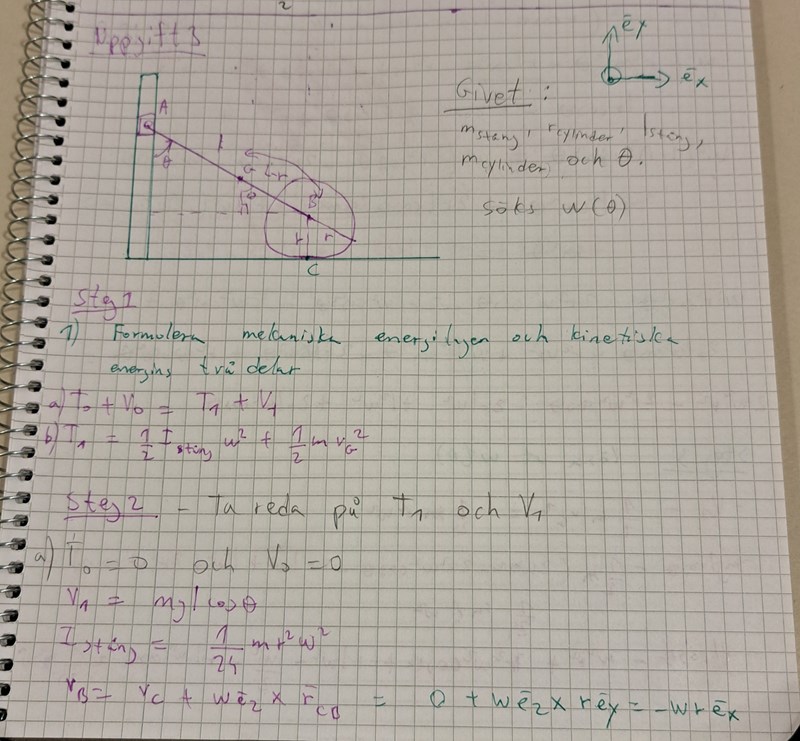 2
Uppgift 3
ēy
ēx
A
θ
l
G
l-r
B
r
r
C
Givet:
m stång, r cylinder, l stång,
m cylinder, och θ.
Söks w(θ)
Steg 1
1) Formulera mekaniska energilagen och kinetiska
energins två delar
a) T₀ + V₀ = T₁ + V₁
b) T₁ = 1/2 I stång w² + 1/2 m v_G²
Steg 2 - Ta reda på T₁ och V₁
a) T₀ = 0 och V₀ = 0
V₁ = mgl cos θ
I stång = 1/24 m r² w²
v_B = v_C + w ē_z × r̄_CB = 0 + w ē_z × r ē_y = -w r ē_x